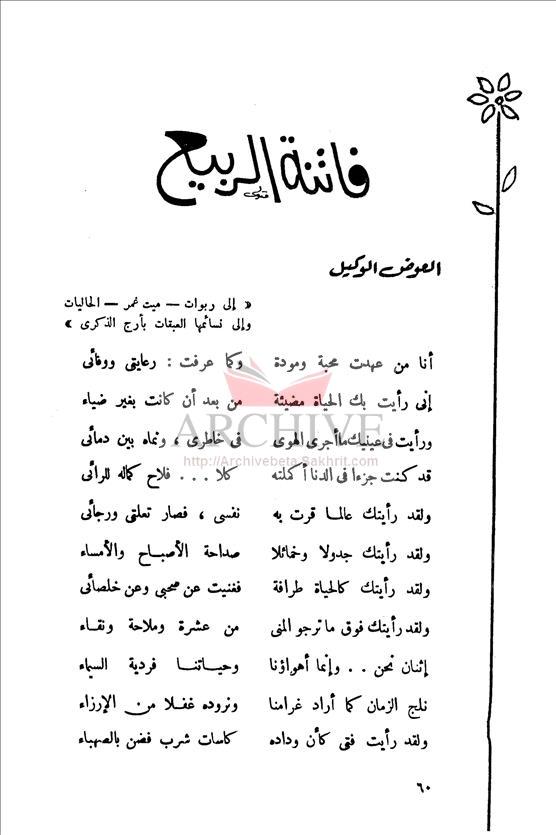 فاتنة الربيع
العوضى الوكيل
« إلى ربوات — ميت غمر — الحاليات
وإلى نسائمها العبقات بأرج الذكرى »
أنا من عهدت محبة ومودة وكما عرفت : رعايتى ووفائى
إنى رأيت بك الحياة مضيئة من بعد أن كانت بغير ضياء
ARCHIVE
ورأيت فى عينيك ما أجرى الهوى فى خاطرى ، ونماه بين دمائى
http://Archivebeta.Sakhrit.com
قد كنت جزءا فى الدنا أكملته كلا . . . فلاح كماله للرائى
ولقد رأيتك عالما قرت به نفسى ، فصار تعلتى ورجائى
ولقد رأيتك جدولا وخمائلا صداحة الأصباح والأمساء
ولقد رأيتك كالحياة طرافة ففنيت عن صحبى وعن خلصائى
ولقد رأيتك فوق ما ترجو المنى من عشرة وملاحة ونقاء
إثنان نحن . . وإنما أهواؤنا وحياتنا فردية السياء
نلج الزمان كما أراد غرامنا ونروده غفلا من الإرزاء
ولقد رأيت فتى كأن وداده كاسات شرب فضن بالصهباء
٦٠